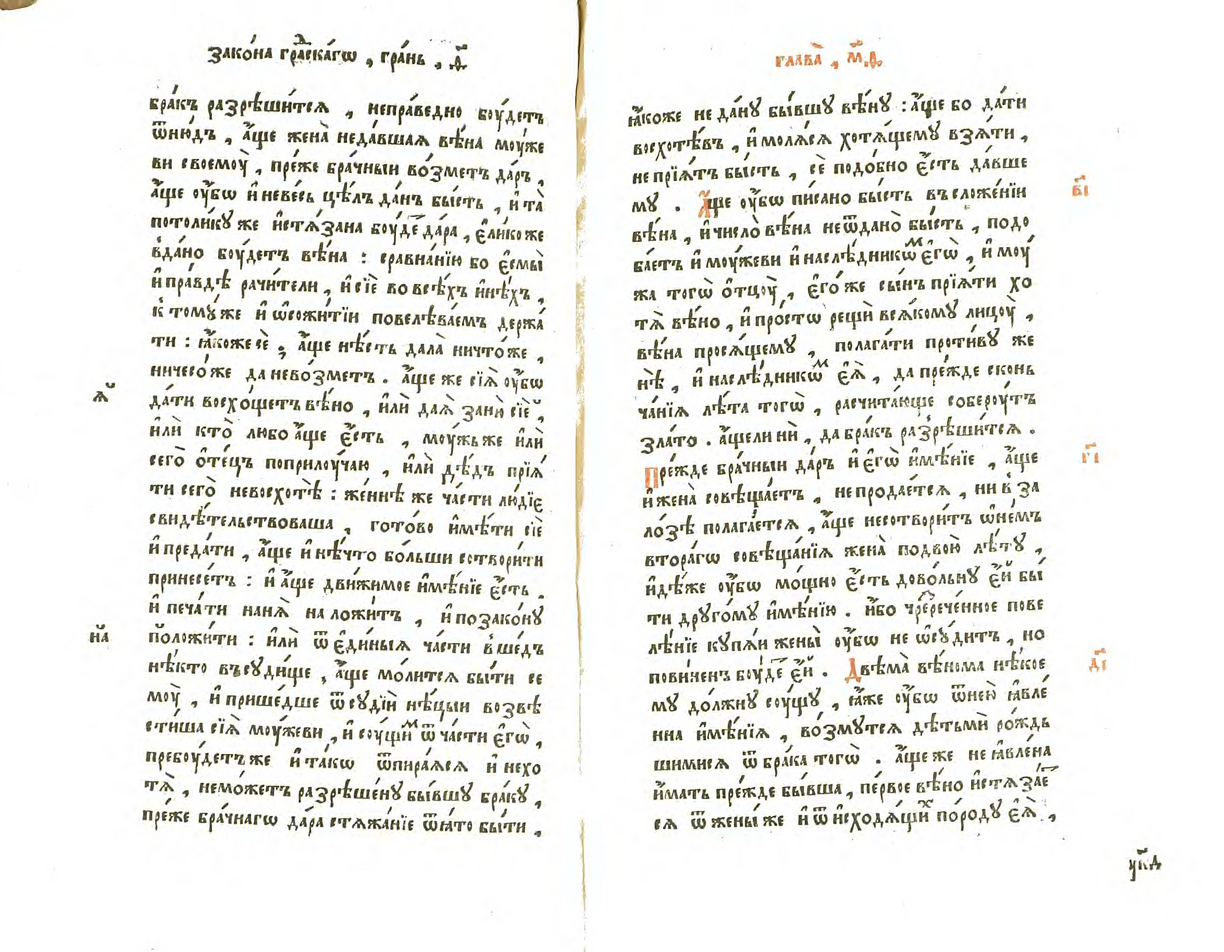 Зако́на гра́дскагѡ , гра́нь , ѳ҃ .
бра́къ разрѣши́тсѧ , непра́ведно боу́детъ
ѿню́дъ , а҆́ще жена̀ неда́вшаѧ вѣ́на моу́же
ви своемоу̀ , пре́же бра́чныи во́зметъ да́ръ ,
а҆́ще оу҆́бѡ и҆ неве́сь цѣ́лъ да́нъ бы́сть , и҆ та̀
потоли́ку же и҆стѧ́зана боу́де да́ра , є҆ли́коже
вда́но боу́детъ вѣ́на : сравна́нїю бо є҆смы̀
и҆ пра́вдѣ рачи́тели , и҆ сїѐ во всѣ́хъ и҆нѣ́хъ ,
к томꙋ́же и҆ ѡ҆сожи́тїи повелѣва́емъ держа́
ти : ꙗ҆́коже сѐ ; а҆́ще нѣ́сть дала̀ ничто́же ,
ничесо́же да нево́зметъ . а҆́ще же сїѧ̀ оу҆́бѡ
л҃
да́ти восхо́щетъ вѣ́но , и҆лѝ даѧ̀ за́нь сїѐ ,
и҆лѝ кто̀ любо а҆́ще є҆́сть , моу́жь же и҆лѝ
сего̀ ѻ҆те́цъ поприлоу́чаю , и҆лѝ дѣ́дъ прїѧ́
ти сего̀ невосхотѣ̀ : же́ннѣ же ча́сти лю́дїє
свидѣ́тельствоваша , гото́во и҆мѣ́ти сїѐ
и҆ преда́ти , а҆́ще и҆ нѣ́что бо́льши сотвори́ти
принесе́тъ : и҆ а҆́ще движи́мое и҆мѣ́нїе є҆́сть .
и҆ печа́ти нанѧ̀ на ложи́тъ , и҆ позако́нꙋ
н҃а
положи́ти : и҆лѝ ѿ є҆ди́ныѧ ча́сти вше́дъ
нѣ́кто въсꙋди́ще , а҆́ще мо́литсѧ бы́ти се
моу̀ , и҆ прише́дше ѿ сꙋді́й нѣ́цыи возвѣ
сти́ша сїѧ̀ моу́жеви , и҆ соу́щим ѿ ча́сти є҆гѡ̀ ,
пребоу́детъ же и҆ та́кѡ ѿпира́ѧсѧ и҆ нехо
тѧ̀ , немо́жетъ разрѣше́нꙋ бы́вшꙋ бра́кꙋ ,
пре́же бра́чнагѡ да́ра стѧжа́нїе ѿѧ́то бы́ти ,
глава̀ , м҃ѳ .
ꙗ҆́коже не да́нꙋ бы́вшꙋ вѣ́нꙋ : а҆́ще бо да́ти
восхотѣ́въ , и҆ молѧ́сѧ хотѧ́щемꙋ взѧ́ти ,
не прїѧ́тъ бы́сть , сѐ подо́бно є҆́сть да́вше
мꙋ . А҆́ще оу҆́бѡ писано бы́сть въ сложе́нїи
в҃і
вѣ́на , и҆ число̀ вѣ́на неѿдано̀ бы́сть , подо
ба́етъ и҆ моу́жеви и҆ наслѣ́дникѡм є҆гѡ̀ , и҆ моу́
жа тогѡ̀ ѻ҆тцоу̀ , є҆го́же сы́нъ прїѧ́ти хо
тѧ̀ вѣ́но , и҆ про́стѡ рещѝ всѧ́комꙋ лицоу̀ ,
вѣ́на просѧ́щемꙋ , полага́ти проти́вꙋ же
нѣ̀ , и҆ наслѣ́дникѡм є҆ѧ̀ , да пре́жде сконь
ча́нїѧ лѣ́та тогѡ̀ , расчита́юще соберoу́тъ
зла́то . а҆́щели нѝ , да бра́къ разрѣши́тсѧ .
Пре́жде бра́чныи да́ръ и҆ є҆гѡ̀ и҆мѣ́нїе , а҆́ще
г҃і
и҆ жена̀ совѣща́етъ , не продае́тсѧ , ни в за
ло́зѣ полага́етсѧ , а҆́ще несотвори́тъ ѡ҆не́мъ
втора́гѡ совѣща́нїѧ жена̀ подвою̀ лѣ́тꙋ ,
и҆дѣ́же оу҆́бѡ мо́щно є҆́сть дово́льнꙋ є҆́й бы́
ти дрꙋго́мꙋ и҆мѣ́нїю . и҆́бо чререче́нное пове
лѣ́нїе кꙋплѧ́и жены̀ оу҆́бѡ не ѡ҆сꙋ́дитъ , но
пови́ненъ боу́де є҆́й . Двѣма̀ вѣ́нома нѣ́кое
д҃і
мꙋ до́лжнꙋ соу́щꙋ , ꙗ҆́же оу҆́бѡ ѿ нею̀ ꙗ҆вле́
нна и҆мѣ́нїѧ , во́змꙋтсѧ дѣтьмѝ ро́ждь
шимисѧ ѿ бра́ка тогѡ̀ . а҆́ще же не ꙗ҆вле́на
и҆́мать пре́жде бы́вша , пе́рвое вѣ́но и҆стѧзае
сѧ ѿ жены̀ же и҆ ѿ и҆сходѧ́щих по ро́дꙋ є҆ѧ̀ ,
ук҃д